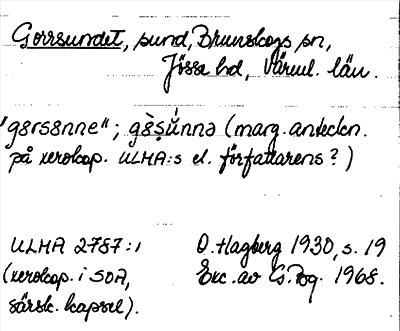 Gorrsundet, sund, Brunskogs sn,
Jösse hd, Värml. län.
"gɞrsɞnne"; gɞ̀ṣụ́̆nnə (marg.anteckn.
på xerokop. ULMA:s el. författarens?)
ULMA 2787:1 O. Hagberg 1930, s. 19
(xerokop. i SOA, Exc. av G. Pog. 1968.
särsk. kapsel).